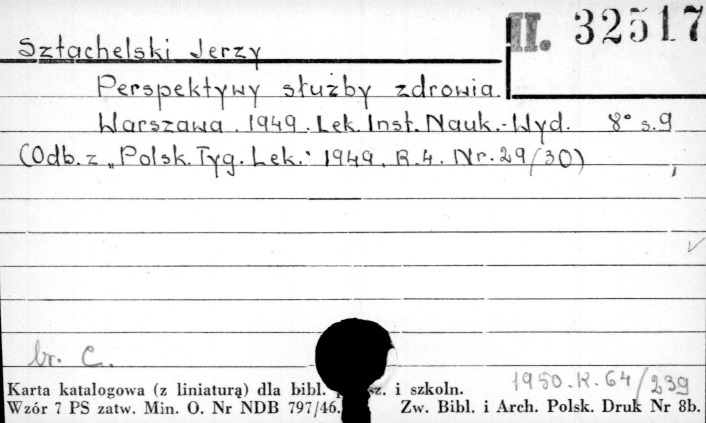 II. 32517
Sztachelski Jerzy
Perspektywy służby zdrowia.
Warszawa. 1949. Lek. Inst. Nauk.-Wyd. 8° s. 9
(Odb. z „Polsk. Tyg. Lek." 1949. R. 4. Nr. 29/30)
br. C.
1950.K.64/239
Karta katalogowa (z liniaturą) dla bibl. sz. i szkoln.
Wzór 7 PS zatw. Min. O. Nr NDB 797/46. Zw. Bibl. i Arch. Polsk. Druk Nr 8b.